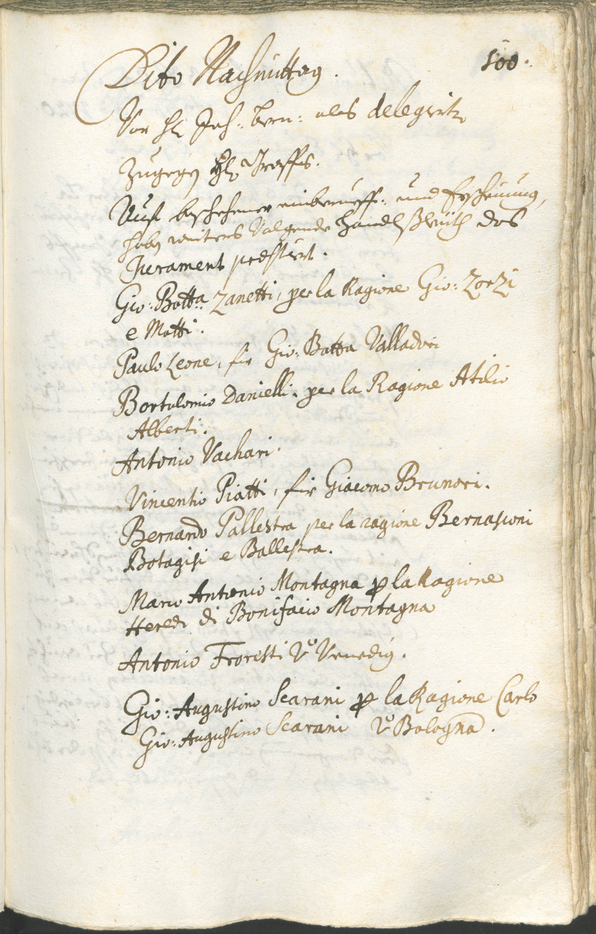 100.
Dito Nachmittag.
Vor H Joh: bern: als delegirte
Zugegen H Graffs.
Nach beschehener einberueff: und Erscheinung,
haben weiters Volgende Handlsleuth das
Jurament prestiert.
Gio: Batta Zanetti, per la Ragione Gio: Zorzi
e Motti.
Paulo Leone, für Gio: Batta Valladori
Bortolomio Danielli. per la Ragione Atilio
Alberti.
Antonio Vachari.
Vincentio Piatti, für Giacomo Brunori.
Bernardo Pallestra per la ragione Bernasconi
Botagisi e Ballestra.
Marco Antonio Montagna p la Ragione
Heredi di Bonifacio Montagna
Antonio Froristi Vo Venedig.
Gio: Augustino Scarani p la Ragione Carlo
Gio: Augustino Scarani Vo Bologna.